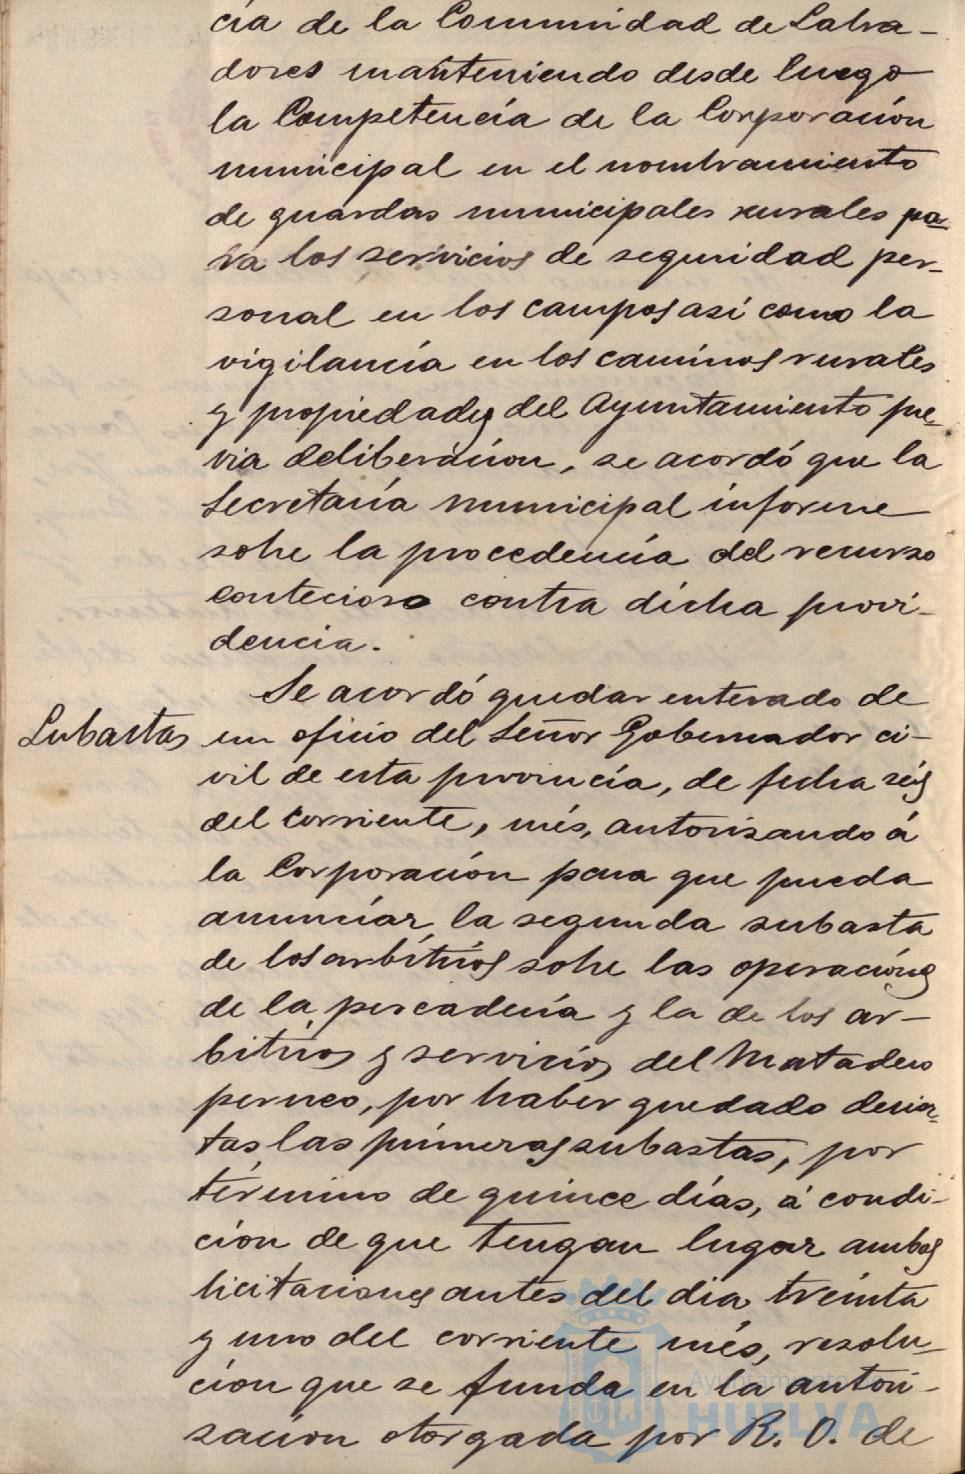 cía de la Comunidad de Labra-
dores manteniendo desde luego
la Competencía de la Corporacíon
municipal en el nombramiento
de guardas municipales rurales pa-
ra los servicios de seguridad per-
sonal en los campos así como la
vigilancía en los camínos rurales
y propiedades del Ayuntamiento pre-
via deliberacíon, se acordó que la
Secretaría municipal ínforme
sobre la procedencía del recurso
contecioso contra dícha provi-
dencia.
Se acordó quedar enterado de
Subastas
un oficio del Señor Gobernador ci-
vil de esta provincía, de fecha séis
del corriente, més, autorizando á
la Corporacíón para que pueda
anuncíar la segunda subasta
de los arbítríos sobre las operacíónes
de la pescadería y la de los ar-
bitrios y servicíos del Matadero
perneo, por haber quedado desier-
tas las prímeras subastas, por
término de quince días, á condi-
cíon de que tengan lugar ambas
licitaciones antes del dia treínta
y uno del corriente més, resolu-
cíon que se funda en la autori-
zacíon otorgada por R. O. de
Ayuntamiento de
HUELVA